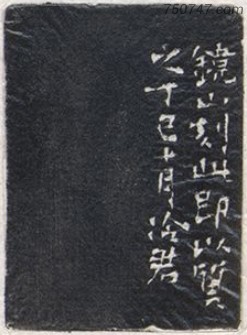 750747.com
鏡山刻此即以質
之丁巳十月冷君